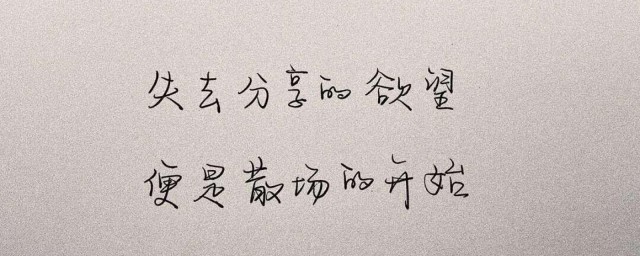 失去分享的欲望
便是散场的开始